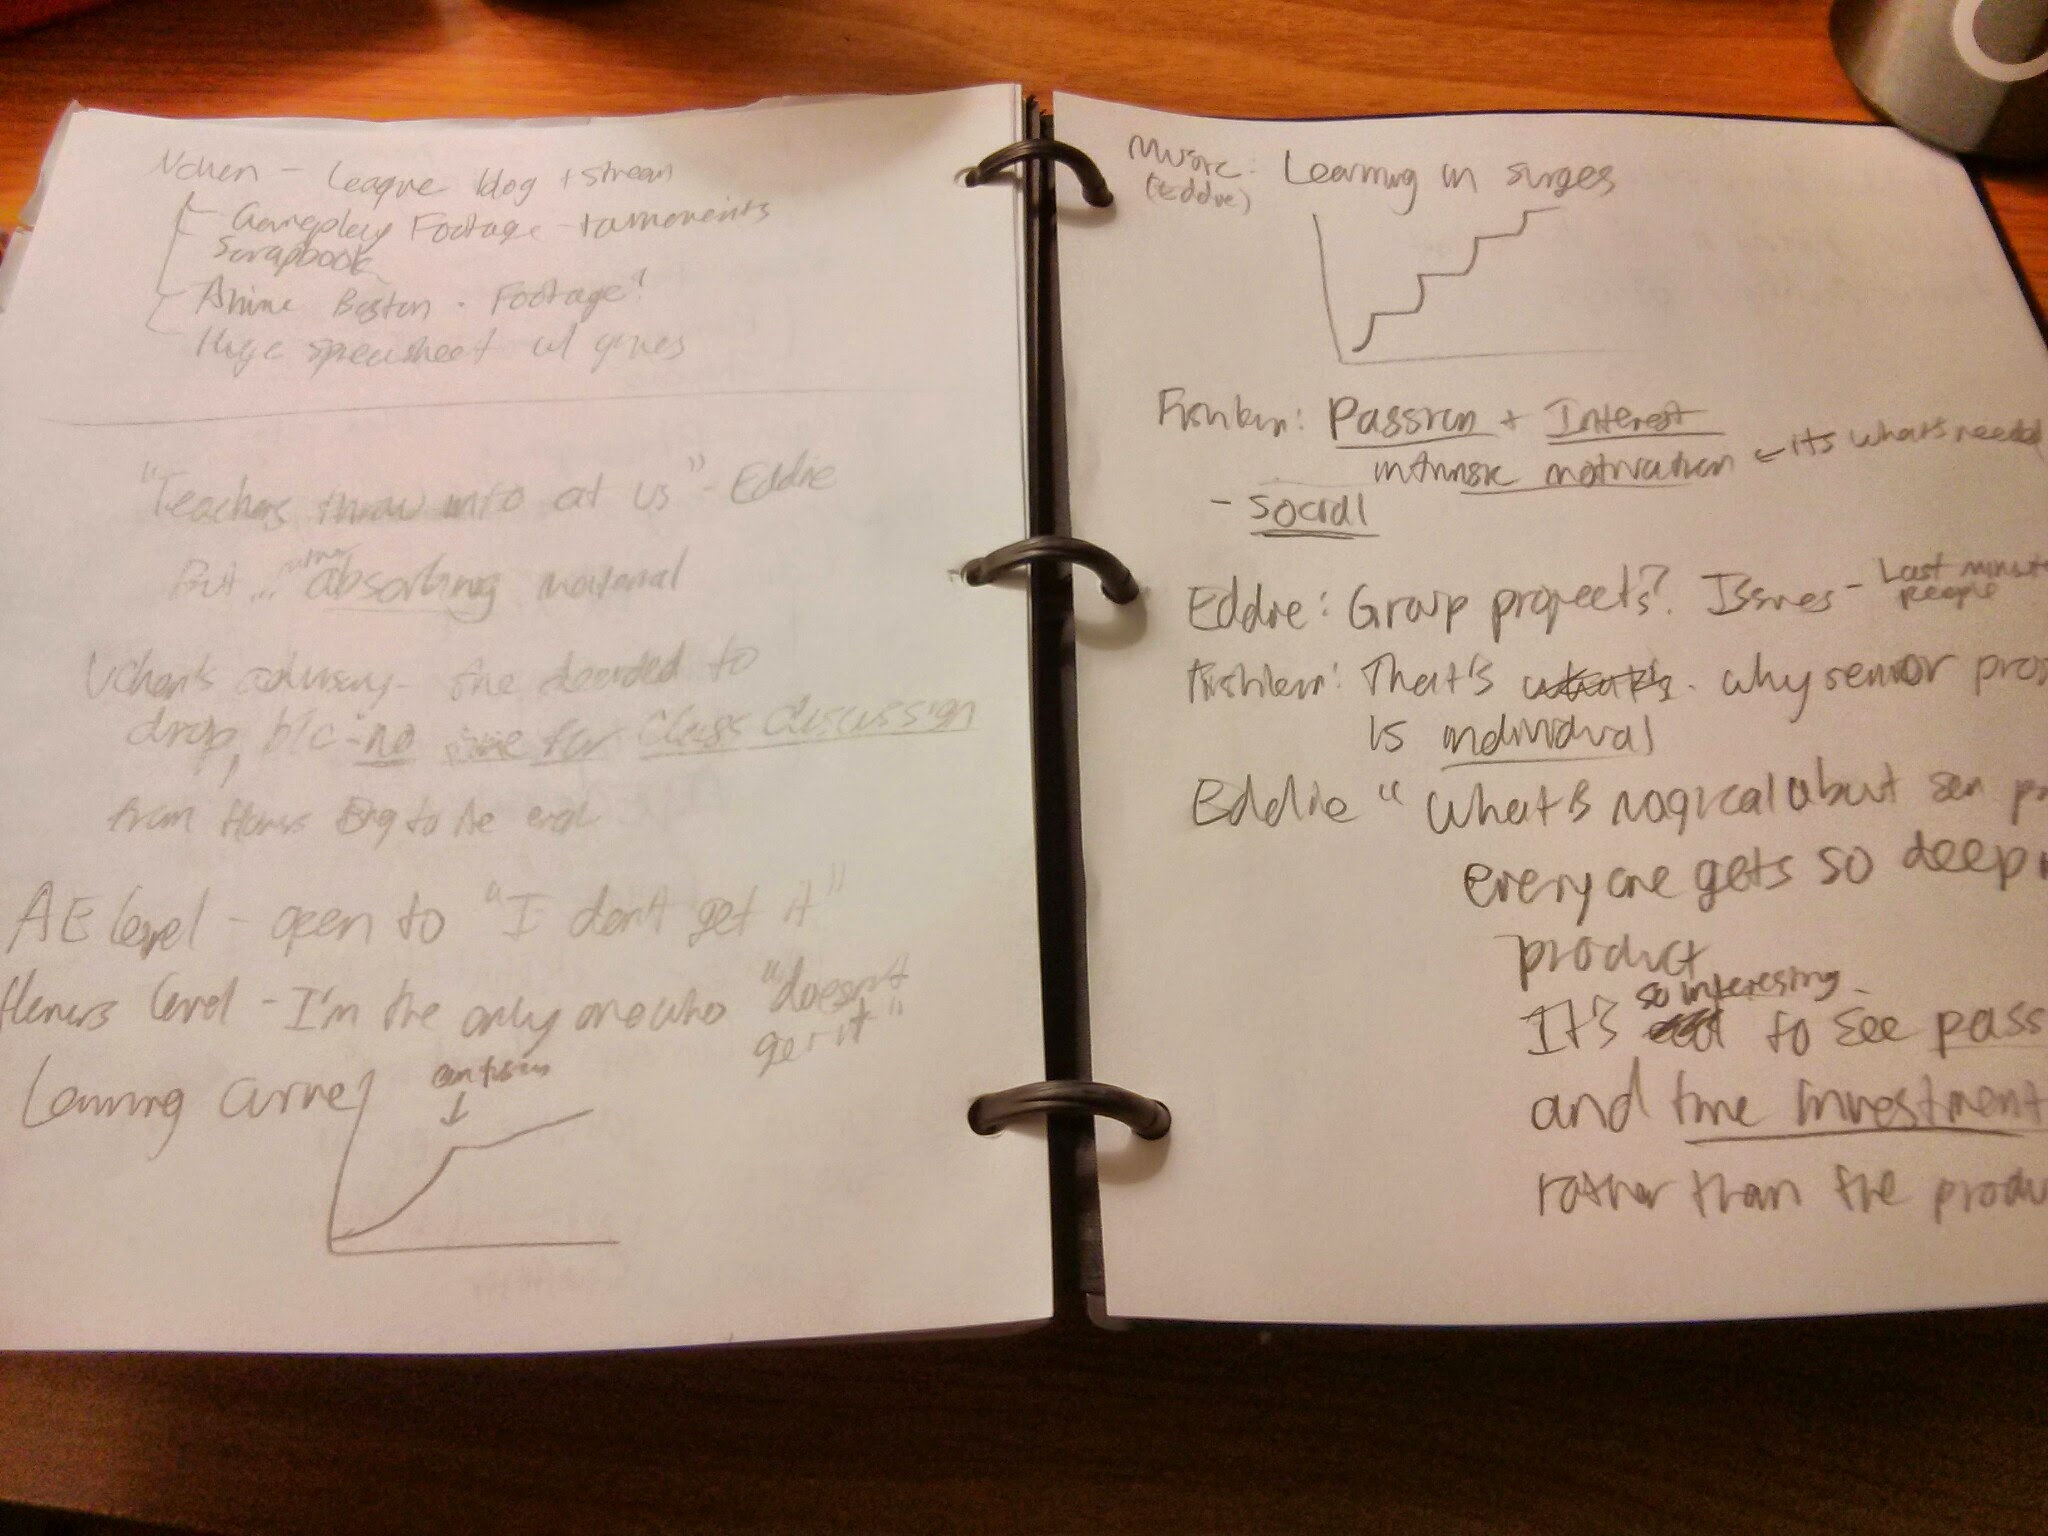 League blog + stream
Gameplay Footage - tournoments
Scrapbook
Anime Boston - Footage?
Huge spreadsheet w/ games
"Teachers throw info at us" - Eddie
But... absorbing material
she decided to
drop, b/c no time for class discussion
from Honors Eng to the end
AE level - open to "I don't get it"
Honors level - I'm the only one who "doesn't
get it"
Learning curve
confusion
Music: Learning in surges
(Eddie)
Fishken: Passion + Interest
intrinsic motivation ← it's what's needed
- social
Eddie: Group projects? Issues - Last minute
people
That's what's. why senior
is individual
Eddie "What's magical about sen
everyone gets so deep
product
so interesting
It's to see pass
and time investment
rather than the produ